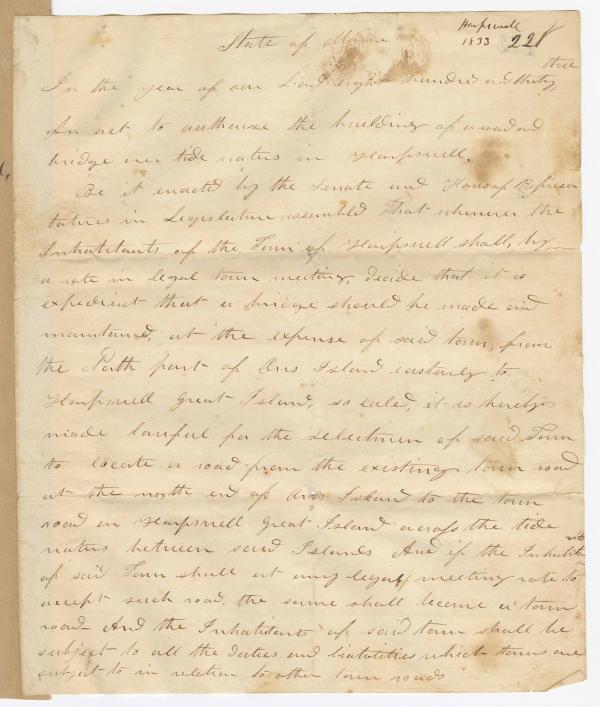 Harpswell
1833 228
State of Maine
In the year of our Lord eight hundred and thirty three
An act to authorize the building of a road and
bridge over tide waters in Harpswell.
Be it enacted by the Senate and House of Represen
tatives in Legislature assembled That whenever the
Inhabitants of the Town of Harpswell shall, by
a vote in legal town meeting, decide that it is
expedient that a bridge should be made and
maintained, at the expense of said town, from
the North part of Orrs Island easterly to
Harpswell Great Island, so caled, it is hereby
made lawful for the selectmen of said Town
to locate a road from the existing town road
at the north end of Orrs Island to the town
road on Harpswell Great Island across the tide
waters between said Islands And if the Inhabitants
of said Town shall at any legal meeting vote to
accept such road, the same shall become a town
road And the Inhabitants of said town shall be
subject to all the duties and liabilities which towns are
subject to in relation to other town roads